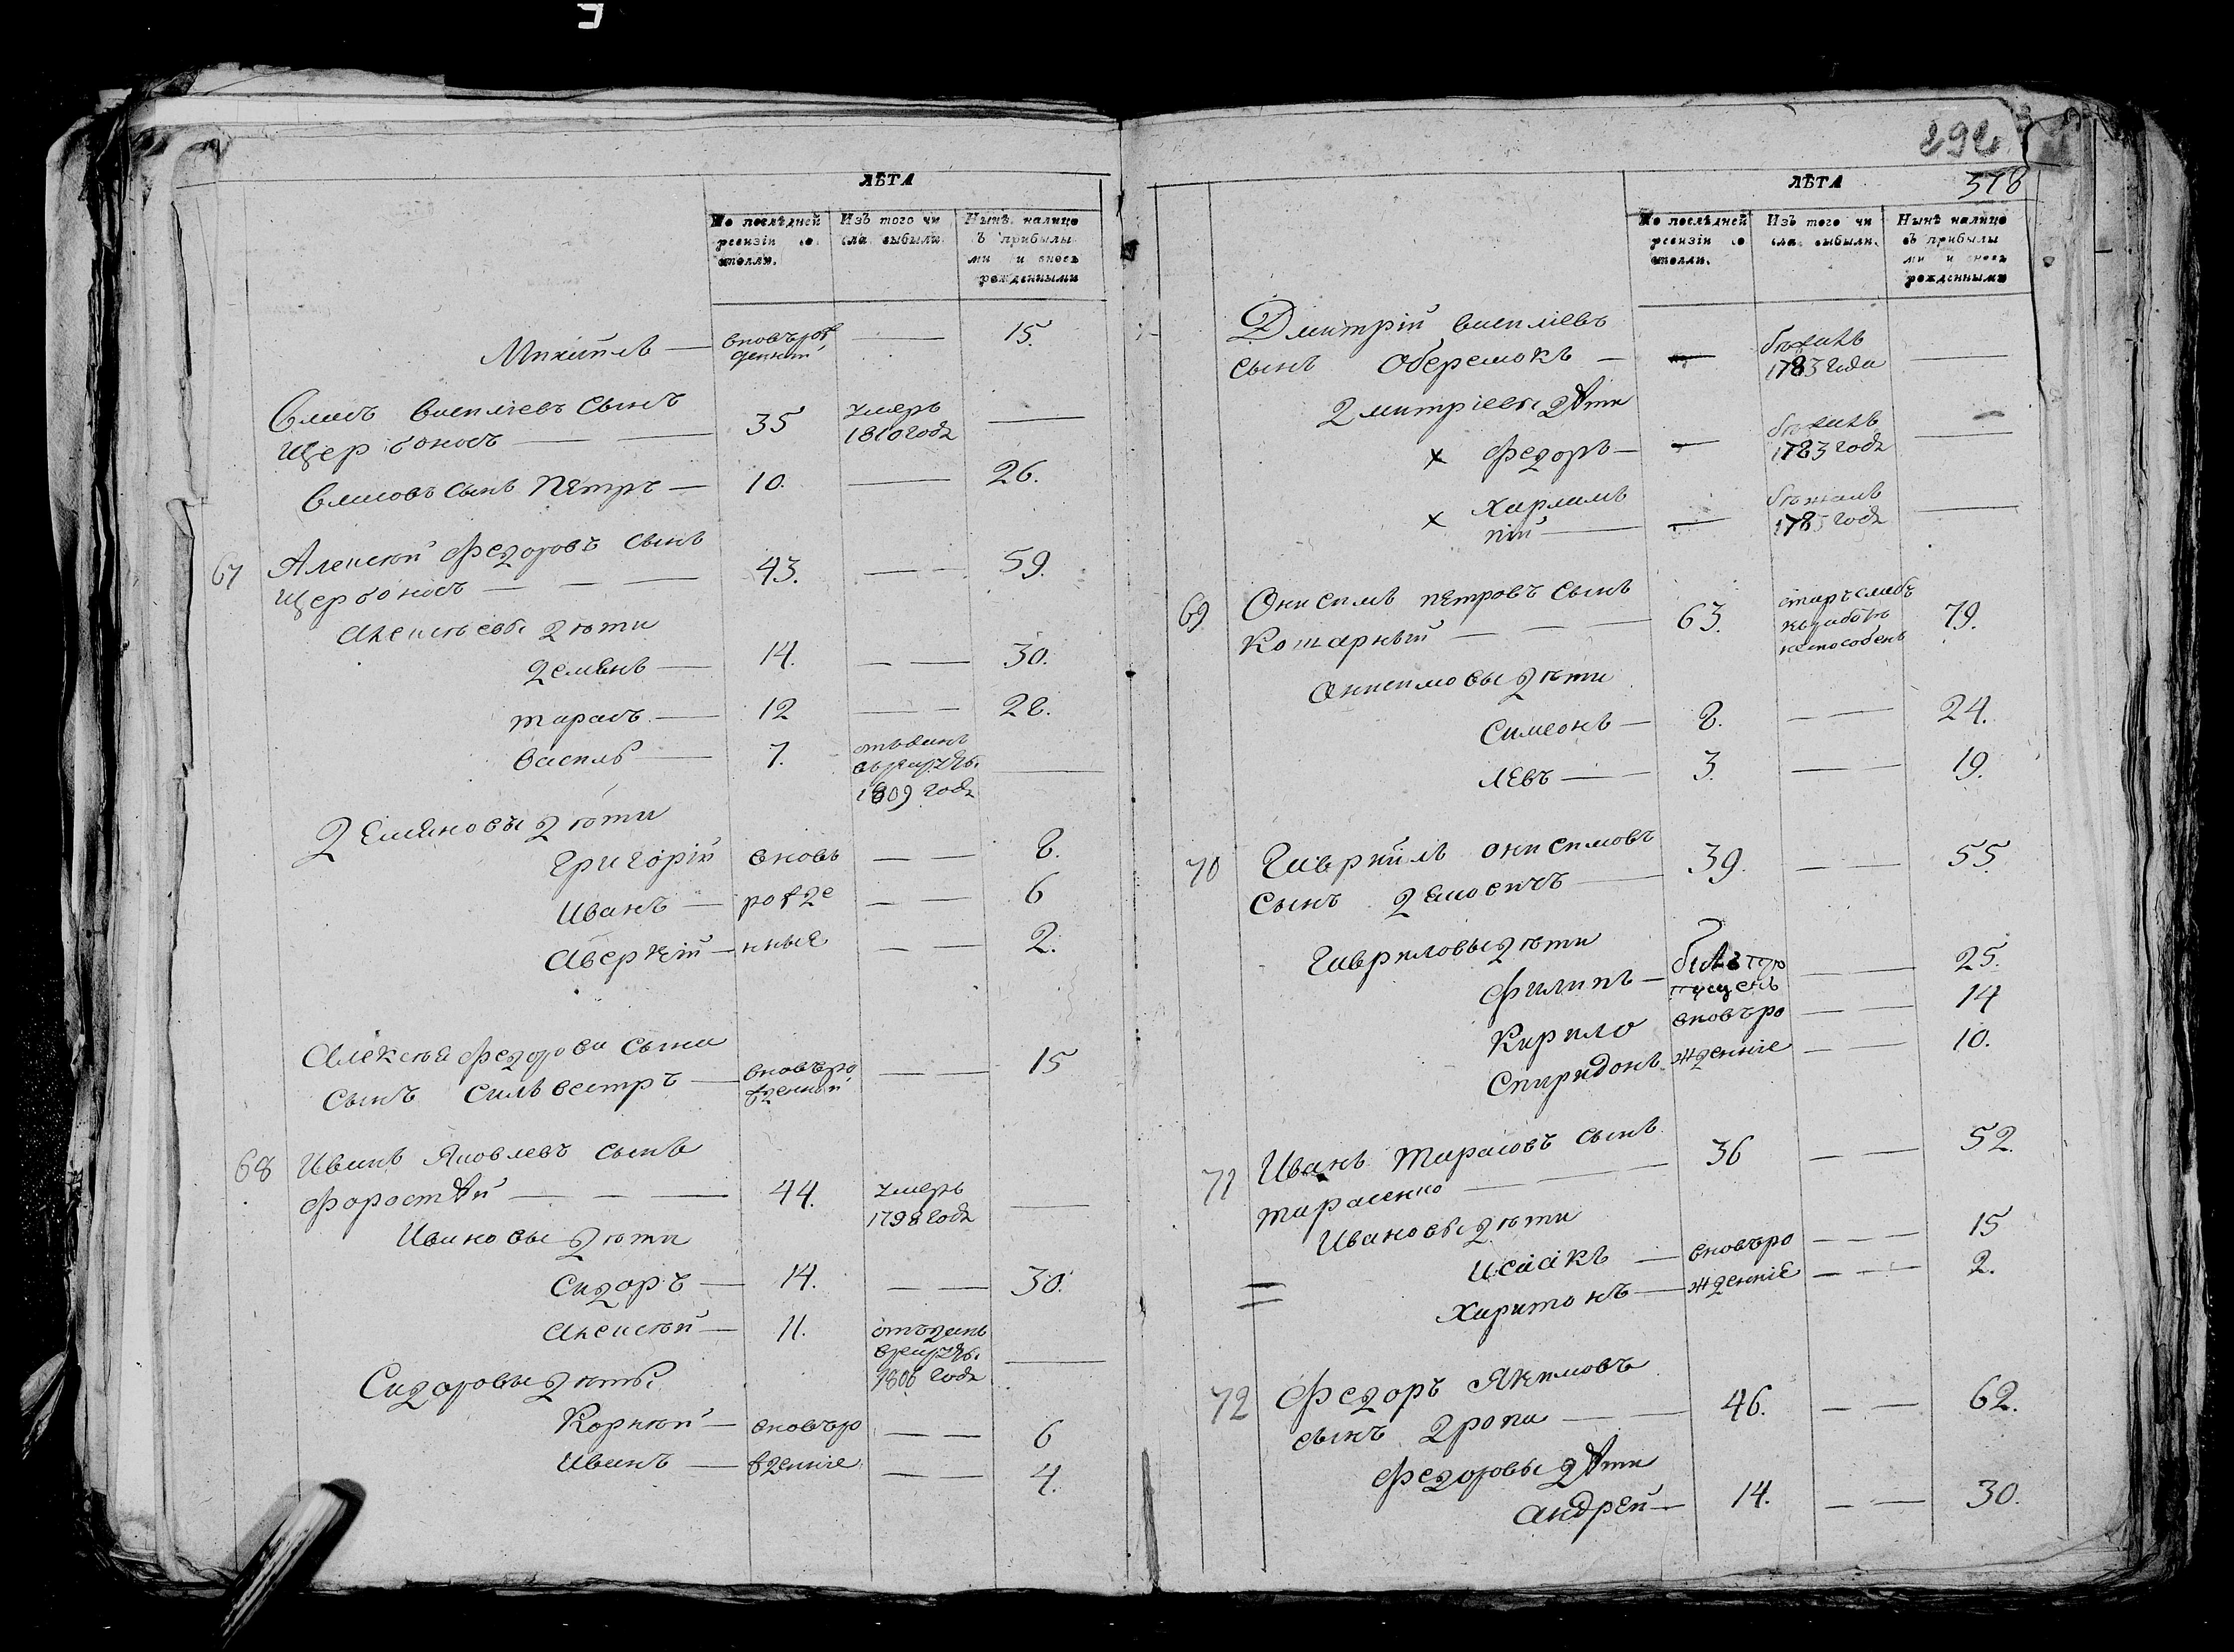 ЛѢТА
По послѣдней ревизіи состояли.
Изъ того числа выбыли.
Нынѣ налицо съ прибылыми и вновь рожденными
Михаилъ — вновьрожденный — 15.
Власъ василiевъ сынъ
Щербоносъ — 35 умеръ 1810 года —
Власовъ сынъ Петръ — 10. — 26.
67 Алексѣй Федоровъ сынъ
Щербоносъ — 43. — 59.
Алексѣевы дѣти
Демянъ — 14. — 30.
тарасъ — 12 — 28.
василь — 7. отъдань врекруты. 1809 года —
Демяновы дѣти
Григорій вновь — 8.
Иванъ — рожде — 6
Аверкій — нные — 2.
Алексѣя Федорова сына
сынъ Сильвестръ — вновьрожденный — 15
68 Иванъ Яковлевъ сынъ
Форостѣй — 44. умеръ 1798 года —
Ивановы дѣти
Сидоръ — 14. — 30.
Алексѣй — 11. отъданъ врекруты. 1806 года —
Сидоровы дѣти
Корнѣй — вновьро — 6
Иванъ — жденніе — 4.
292
318
ЛѢТА
По послѣдней ревизіи состояли.
Изъ того числа выбыли.
Нынѣ налицо съ прибылыми и вновь рожденными
Дмитрій василіевъ
сынъ Оберемокъ — — бѣжалъ 1783 года —
Дмитріевы дѣти
х Федоръ — — бѣжалъ 1783 года —
х Харлампій — — бѣжалъ 1785 года —
69 Онисимъ петровъ сынъ
Кошарный — 63. старъ слабъ кработѣ неспособенъ 79.
Онисимовы дѣти
Симеонъ — 8. — 24.
Левъ — 3. — 19.
70 Гаврiилъ онисимовъ
сынъ — 39. — 55.
Гавриловы дѣти
Филипъ — былъ пущенъ — 25.
Кирило вновьро — 14
Спиридонъ жденніе — 10.
71 Иванъ Тарасовъ сынъ
тарасенко — 36 — 52.
Ивановы дѣти
Исаакъ — вновьро — 15
Харитонъ — жденніе — 2.
72 Федоръ Якимовъ
сынъ — 46. — 62.
Федоровы дѣти
Андрей — 14. — 30.